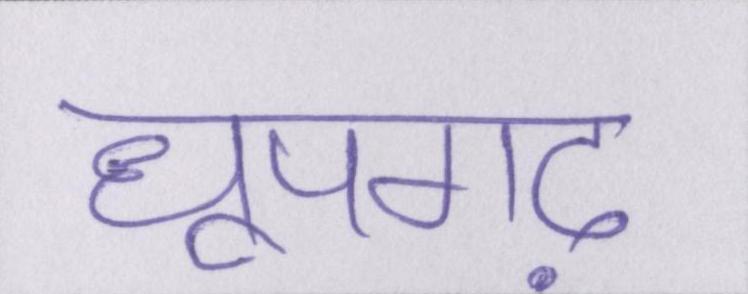 धूपगढ़